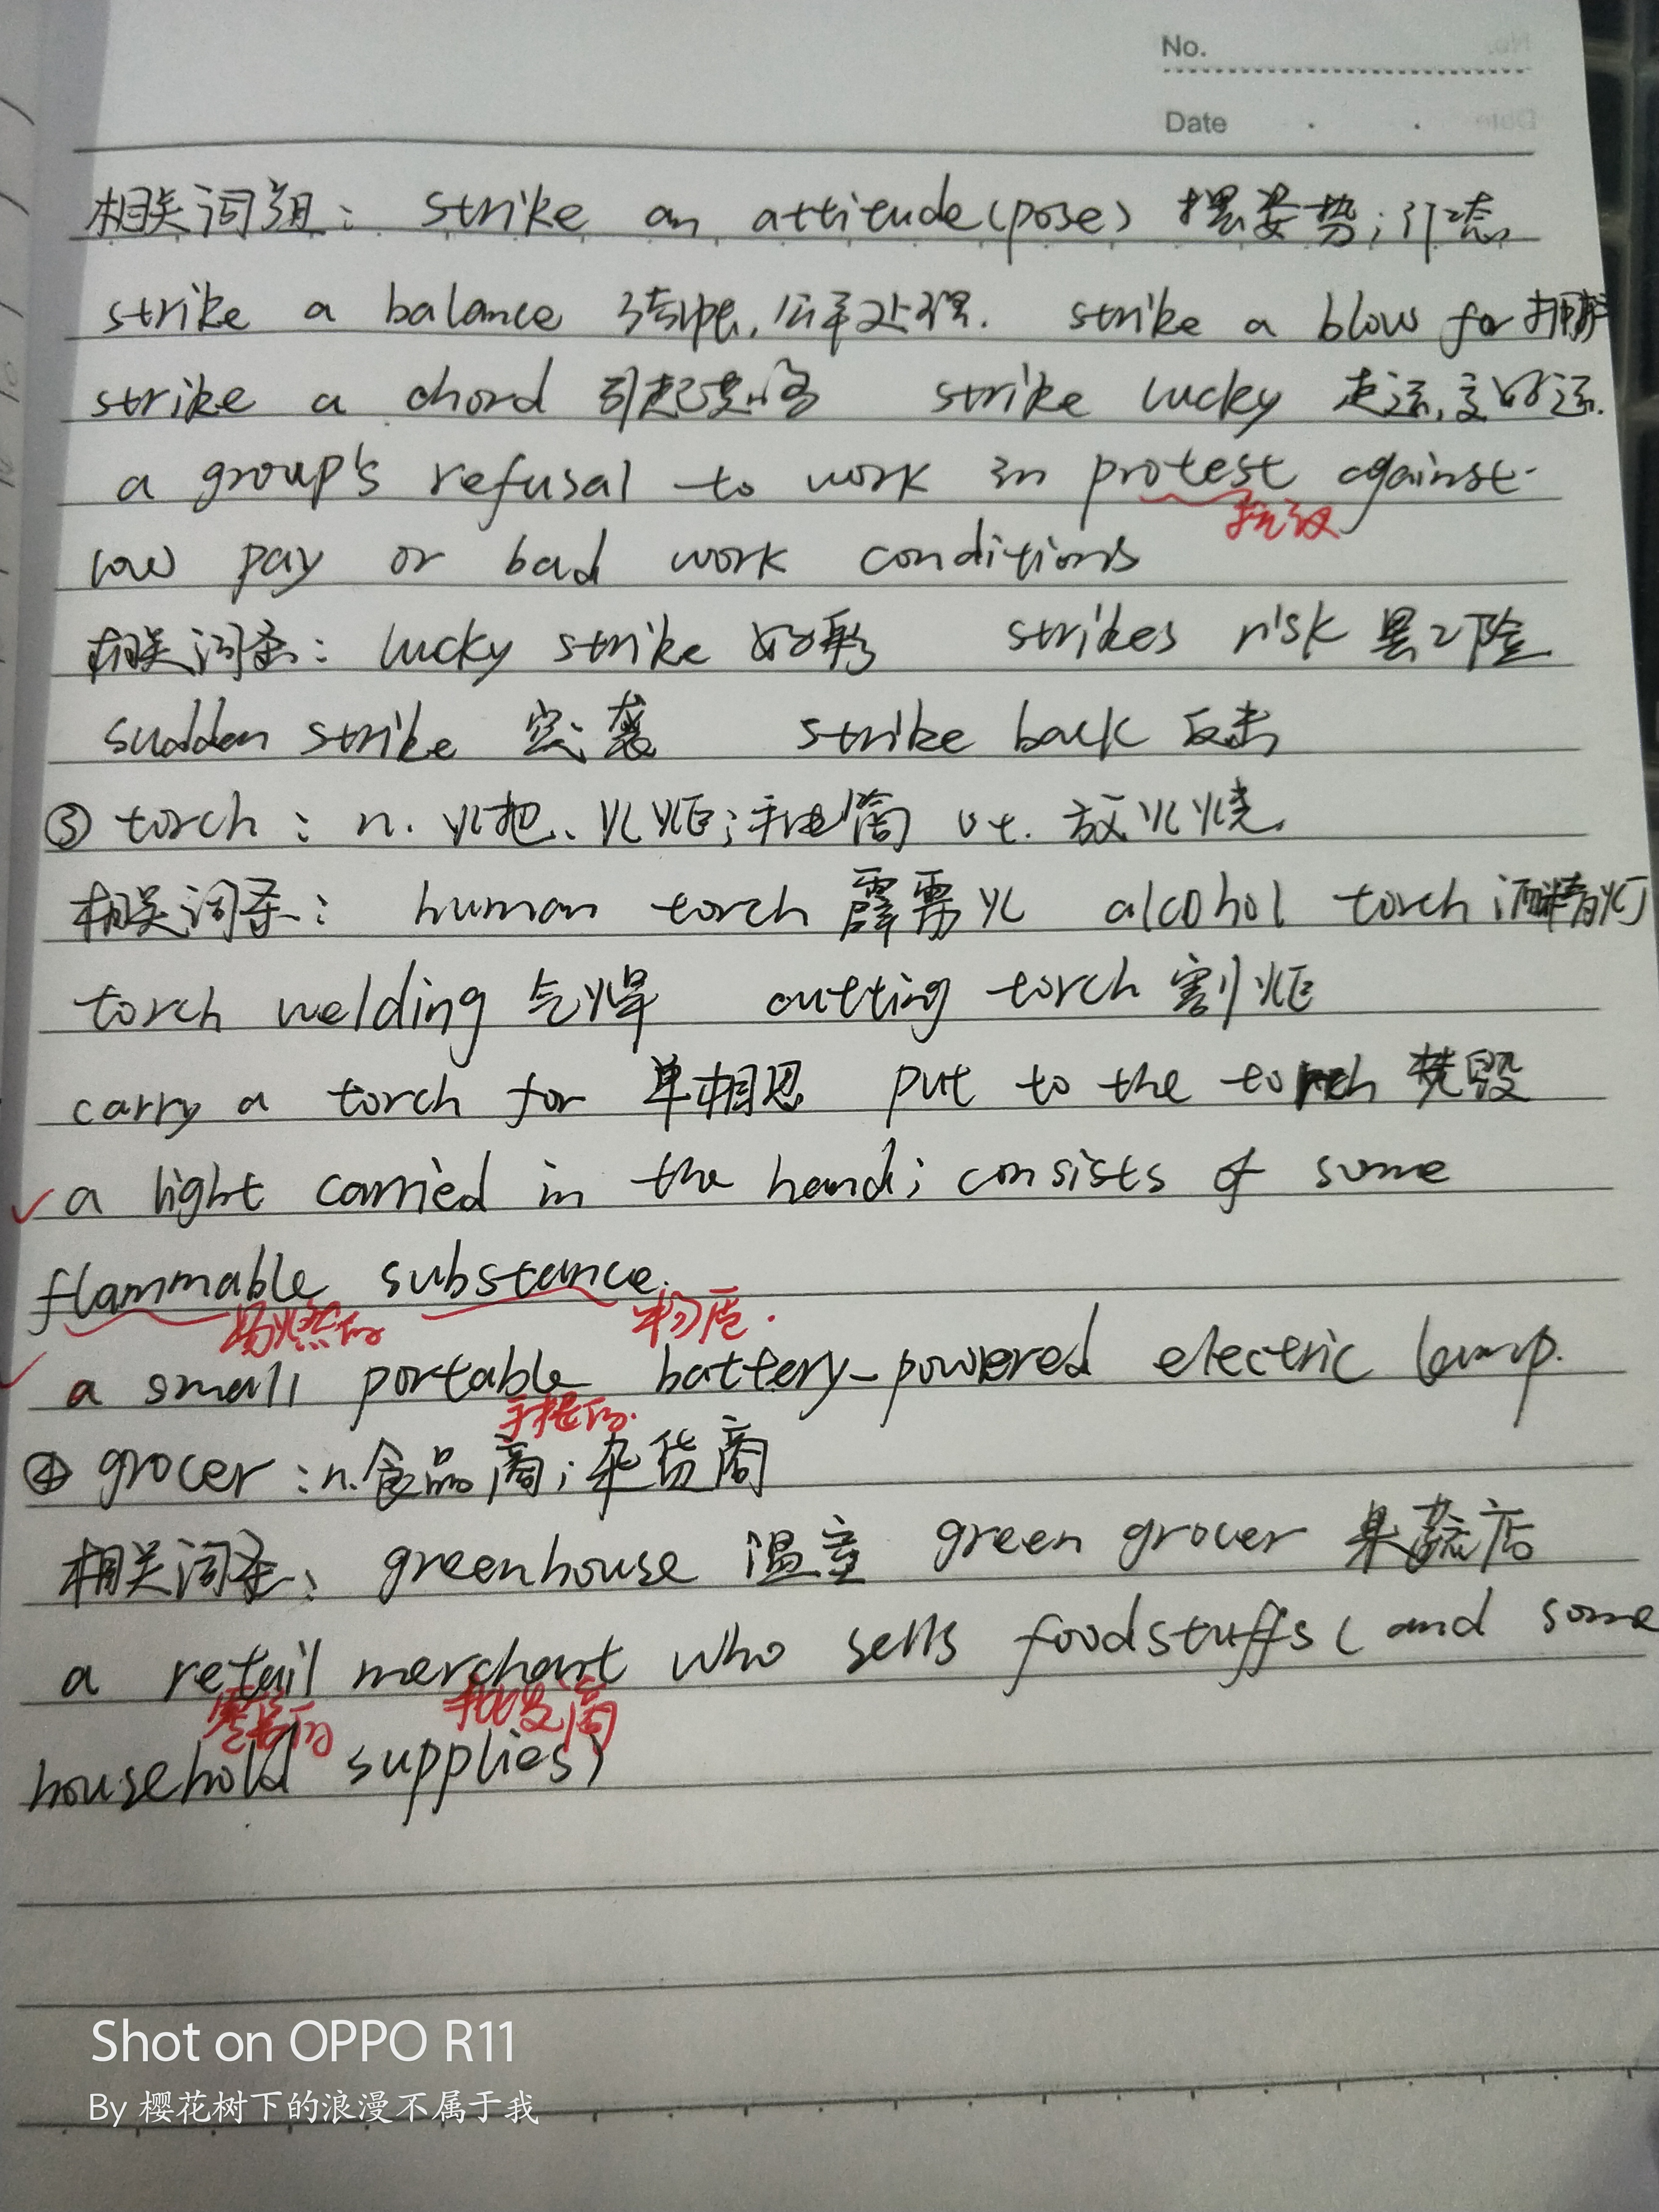 No.
Date
相关词组: strike an attitude(pose) 摆姿势;
strike a balance 结帐,公平处理. strike a blow for 拥护
strike a chord 引起共鸣 strike lucky 走运,交好运.
a group's refusal to work in protest against
抗议
low pay or bad work conditions
相关词条: lucky strike 好彩 strikes risk 罢工险
sudden strike 突袭 strike back 反击
③ torch : n. 火把、火炬;手电筒 vt. 放火烧
相关词条: human torch 霹雳火 alcohol torch 酒精灯
torch welding 气焊 cutting torch 割炬
carry a torch for 单相思 put to the torch 焚毁
a light carried in the hand; consists of some
flammable substance.
易燃的 物质.
a small portable battery-powered electric lamp.
手提的.
④ grocer : n.食品商;杂货商
相关词条: greenhouse 温室 green grocer 果蔬店
a retail merchant who sells foodstuffs ( and some
零售的 批发商
household supplies)
Shot on OPPO R11
By 樱花树下的浪漫不属于我